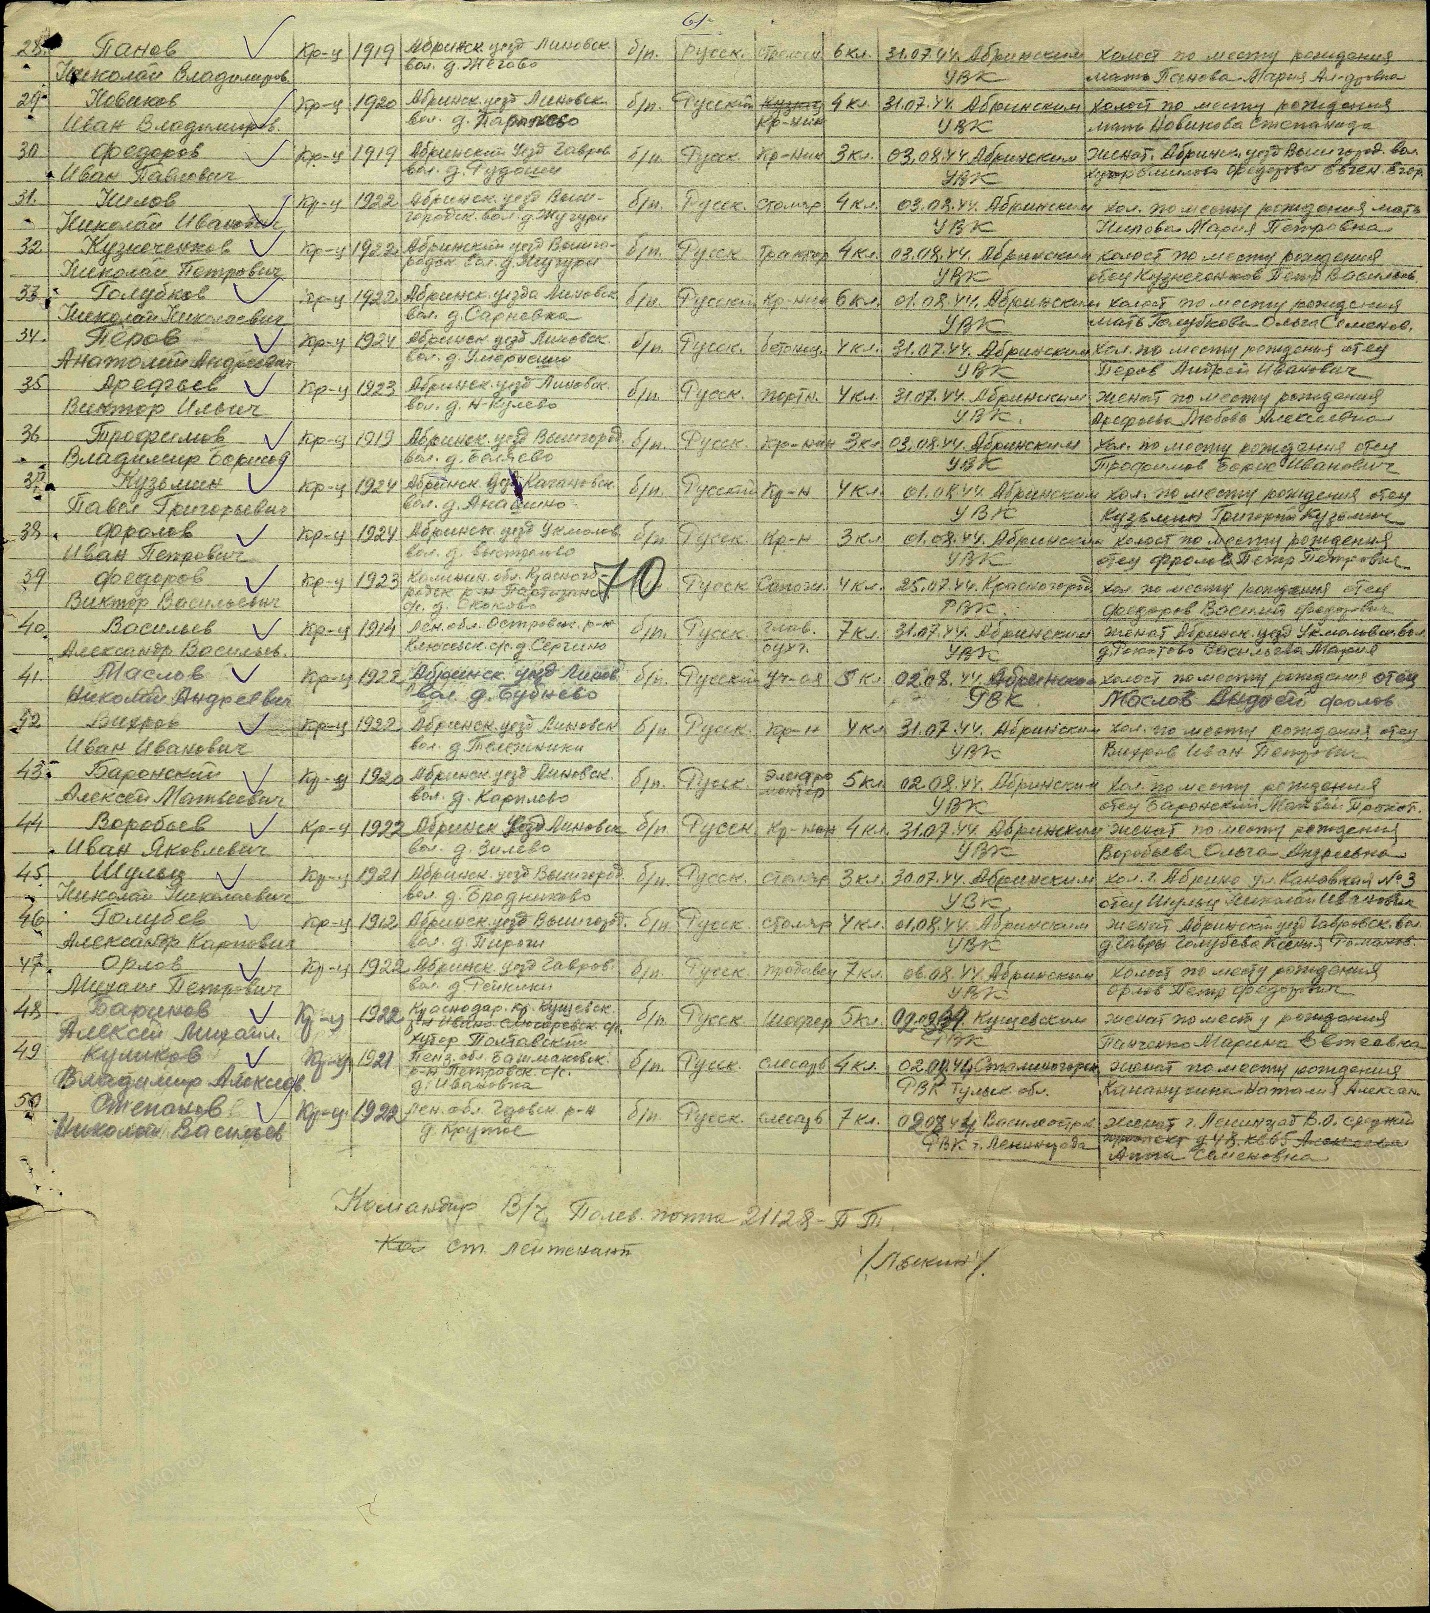 61
28. Панов Кр-ц 1919 Абринск. уезд Линовск. б/п. Русск. 6 кл. 31.07.44. Абринским холост по месту рождения
Николай Владимиров. вол. д. Жегово УВК мать Панова Мария
29 Новиков Кр-ц 1920 Абринск. уезд Линовск. б/п. Русский 4 кл. 31.07.44. Абринским холост по месту рождения
Иван Владимиров. вол. д. Кр-нин УВК мать Новикова Степанида
30 Федоров Кр-ц 1919 Абринский уезд Гавров б/п. Русск. Кр-нин 3 кл. 03.08.44 Абринским женат. Абринск. уезд Вышгород. вол.
Иван Павлович вол. д. УВК Федорова Евген. Егор.
31. Нилов Кр-ц 1922 Абринск. уезд Выш- б/п. Русск. столяр 4 кл. 03.08.44. Абринским хол. по месту рождения мать
Николай Иванович городск. вол. д. Жугури УВК Нилова Мария Петровна
32 Кузнеченков Кр-ц 1922 Абринский уезд Вышго- б/п. Русск. трактор 4 кл. 03.08.44. Абринским холост по месту рождения
Николай Петрович родск. вол. д. Жугури УВК отец Кузнеченков Петр Васильев.
33. Голубков Кр-ц 1922 Абринск. уезда Линовск. б/п. Русский Кр-нин 6 кл. 01.08.44. Абринским холост по месту рождения
Николай Николаевич вол. д. Сарневка УВК мать Голубкова Ольга Семенов.
34. Перов Кр-ц 1924 Абринск уезд Линовск. б/п. Русск. 4 кл. 31.07.44. Абринским хол. по месту рожденья отец
Анатолий Андреевич вол. д. УВК Перов Андрей Иванович
35 Арефьев Кр-ц 1923 Абринск. уезд Линовск. б/п. Русск. портн. 4 кл. 31.07.44. Абринским женат по месту рождения
Виктор Ильич вол. д. Н-Кулево УВК. Арефьева Любовь Алексеевна
36 Трофимов Кр-ц 1919 Абринск. уезд Вышгород. б/п. Русск. Кр-нин 3 кл 03.08.44. Абринским хол. по месту рождения отец
Владимир Борисов вол. д. Боляево УВК Трофимов Борис Иванович
37. Кузьмин Кр-ц 1924 Абринск. уезд Качановск. б/п. Русский Кр-н 4 кл. 01.08.44 Абринским хол. по месту рождения отец
Павел Григорьевич вол. д. Анашино УВК Кузьмин Григорий Кузьмич
38 Фролов Кр-ц 1924 Абринск. уезд Укмолов. б/п. Русск. Кр-н 3 кл 01.08.44. Абринским холост по месту рождения
Иван Петрович вол. д. УВК отец Фролов Петр Петрович
39 Федоров Кр-ц 1923 Калинин. обл. Красного- 70 Русск Сапожн. 4 кл. 25.07.44. Красногород хол. по месту рождения отец
Виктор Васильевич родск р-н Партизанск. РВК. Федоров Василий Федорович
с/с. д. Скоково
40. Васильев Кр-ц 1914 Лен. обл. Островск. р-н б/п. Русск. глав. 7 кл. 31.07.44. Абринским женат Абринск. уезд Укмоловск. вол.
Александр Васильев. с/с. д. Сергино бухг. УВК Васильева Мария
41. Маслов Кр-ц 1922 Абринск. уезд Линов б/п. Русский уч-ся 5 кл 02.08.44. Абринском холост по месту рождения отец
Николай Андреевич вол. д. Бубнево РВК Маслов Андрей Фролов
42 Вихров Кр-ц 1922 Абринск. уезд Линовск б/п. Русск. Кр-н 4 кл 31.07.44. Абринским хол. по месту рождения отец
Иван Иванович вол. д. Тележники УВК Вихров Иван Петрович
43. Баронский Кр-ц 1920 Абринск. уезд Линовск. б/п. Русск. электро 5 кл 02.08.44. Абринским хол. по месту рождения
Алексей Матвеевич вол. д. Карплево монтер УВК отец Баронский Матвей
44 Воробьев Кр-ц 1922 Абринск уезд Линовск б/п. Русск Кр-нин 4 кл. 31.07.44. Абринским женат по месту рождения
Иван Яковлевич вол. д. Зилево УВК Воробьева Ольга Андреевна
45 Шульц Кр-ц 1921 Абринск. уезд Вышгород б/п. Русск. столяр 3 кл. 30.07.44. Абринским хол. г. Абрино ул. №3
Николай Николаевич вол. д. Бродниково УВК отец Шульц Николай Иванович
46 Голубев Кр-ц 1912 Абринск. уезд Вышгород. б/п. Русск столяр 4 кл. 01.08.44. Абринским женат Абринский уезд Гавровск. вол.
Александр Карпович вол. д. Пироги УВК д. Гавры Голубева Ксения Романов.
47. Орлов Кр-ц 1922 Абринск. уезд Гавров. б/п. Русск. продавец 7 кл. 06.08.44. Абринским холост по месту рождения
Михаил Петрович вол. д. Рейкини УВК Орлов Петр Федорович
48 Баринов Кр-ц 1922 Краснодар. кр. Кущевск. б/п. Русск шофер 5 кл. Кущевским женат по месту рождения
Алексей Михайл. р-н Ивано-Слюсаревск. с/с. РВК Панченко Марина Евтеевна
хутор Полтавский
49 Куликов Кр-ц 1921 Пенз. обл. Башмаковск. б/п. Русск. слесарь 4 кл. Сталиногорск женат по месту рождения
Владимир Алексеев. р-н Петровск. с/с. РВК Тульск обл. Наталия Алексан.
д. Ивановка
50 Степанов Кр-ц. 1922 Лен. обл. Гдовск. р-н б/п. Русск. слесарь 7 кл. Василеостров женат г. Ленинград В.О. средний
Николай Васильев д. Крутое РВК г. Ленинграда проспект д 48. кв 65
Анна Семеновна
Командир В/ч. Полев. почта 21128-П Т.
ст. лейтенант
/Лыкин/.